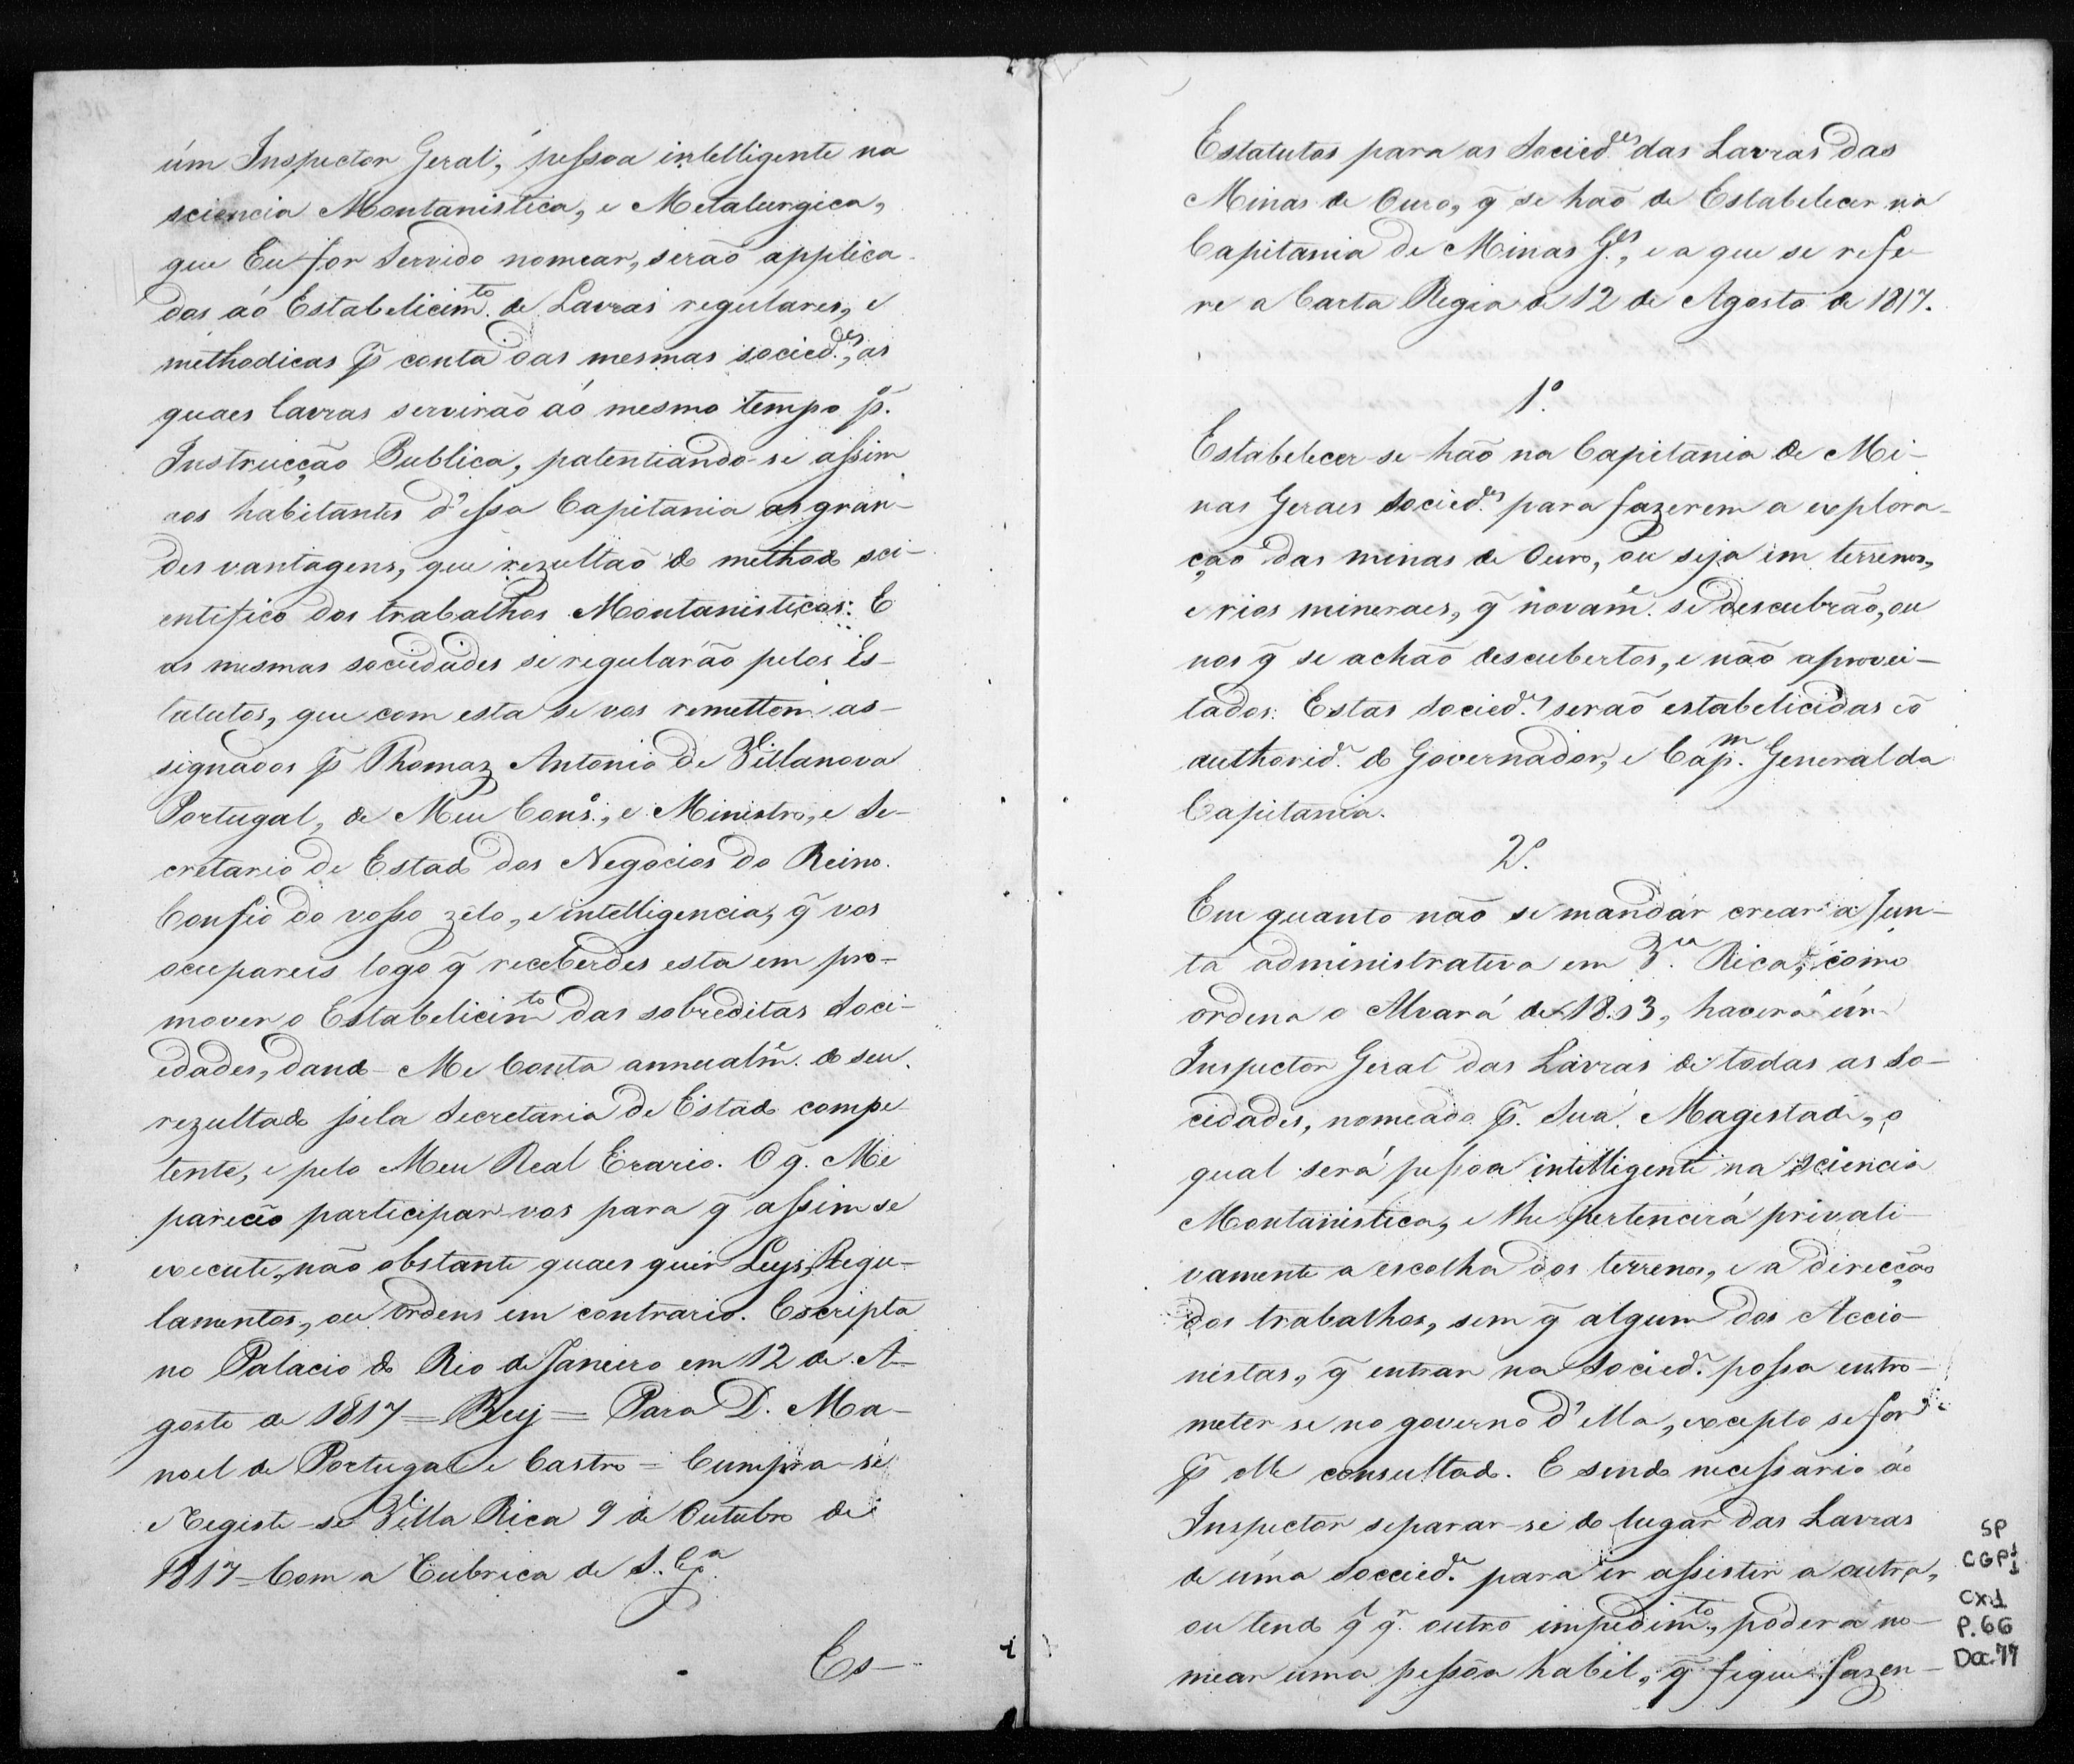 úm Inspector Geral, pessoa intelligente na
sciencia Montanistica, e Metalurgica,
que Eu for Servido nomear, serão applica-
dos aó Estabelicimto. de Lavras regulares, e
methodicas p̃ conta das mesmas socieddes., as
quaes lavras servirão aó mesmo tempo pa.
Instrucção Publica, patentiando-se assim
aos habitantes d'essa Capitania as gran-
des vantagens, que rezultaõ do methodo sci-
entifico dos trabalhos Montanisticos: E
as mesmas sociedades se regularáõ pelos Es-
tatutos, que com esta se vos remettem as-
signados p̃ Thomaz Antonio de Villanova
Portugal, do Meu Conso., e Ministro, e Se-
cretario de Estado dos Negocios do Reino.
Confio do vosso zêlo, e intelligencia, q̃ vos
occupareis logo q̃ receberdes esta em pro-
mover o Estabelicimto das sobreditas Soci-
edades, dando-Me Conta annualm̃. do seu
rezultado pela Secretaria de Estado compe-
tente, e pelo Meu Real Erario. O q̃. Me
pareceo participar-vos para q̃ assim se
execute, não obstante quaes quer Leys, Regu-
lamentos, ou Ordens em contrario. Escripta
no Palacio do Rio de Janeiro em 12 de A-
gosto de 1817 = Rey = Para D. Ma-
noel de Portugal e Castro = Cumpra-se
e Registe-se Villa Rica 9 de Outubro de
1817 = Com a Rubrica de S. Exa.
Es-
Estatutos para as Socieddes das Lavras das
Minas de Ouro, q̃ se haõ de Estabelecer na
Capitania de Minas Ges., e a que se refe-
re a Carta Regia de 12 de Agosto de 1817.
1º.
Estabelecer-se-haõ na Capitania de Mi-
nas Geraes Socieddes. para fazerem a explora-
ção das minas de Ouro, ou seja em terrenos,
e rios mineraes, q̃ novam̃. se descubrão, ou
nos q̃ se achaõ descubertos, e não aprovei-
tados: Estas Socieddes. seraõ estabelicidas cõ
authoride. do Governador, e Capm. General da
Capitania.
2º.
Em quanto naõ se mandar crear a Jun-
ta administrativa em Va. Rica, como
ordena o Alvará de 1803, haverá úm
Inspector Geral das Lavras de todas as So-
cidades, nomeado p̃. Sua Magestade, o
qual será pessoa intelligente na sciencia
Montanistica, e lhe pertencerá privati-
vamente a escolha dos terrenos, e a direcção
dos trabalhos, sem q̃ algum dos Accio-
nistas, q̃ entrar na Sociede. possa entro-
meter-se no governo d'ella, excepto se for
p̃ elle consultado. E sendo necessario áo
Inspector separar-se do lugar das Lavras
de úma Socciede. para ir assistir a outra,
ou tendo q̃ qr. outro impedimto., poderá no-
mear uma pessôa habil, q̃ fique fazen-
SP
CGP1
Cx.1
P.66
Doc.77